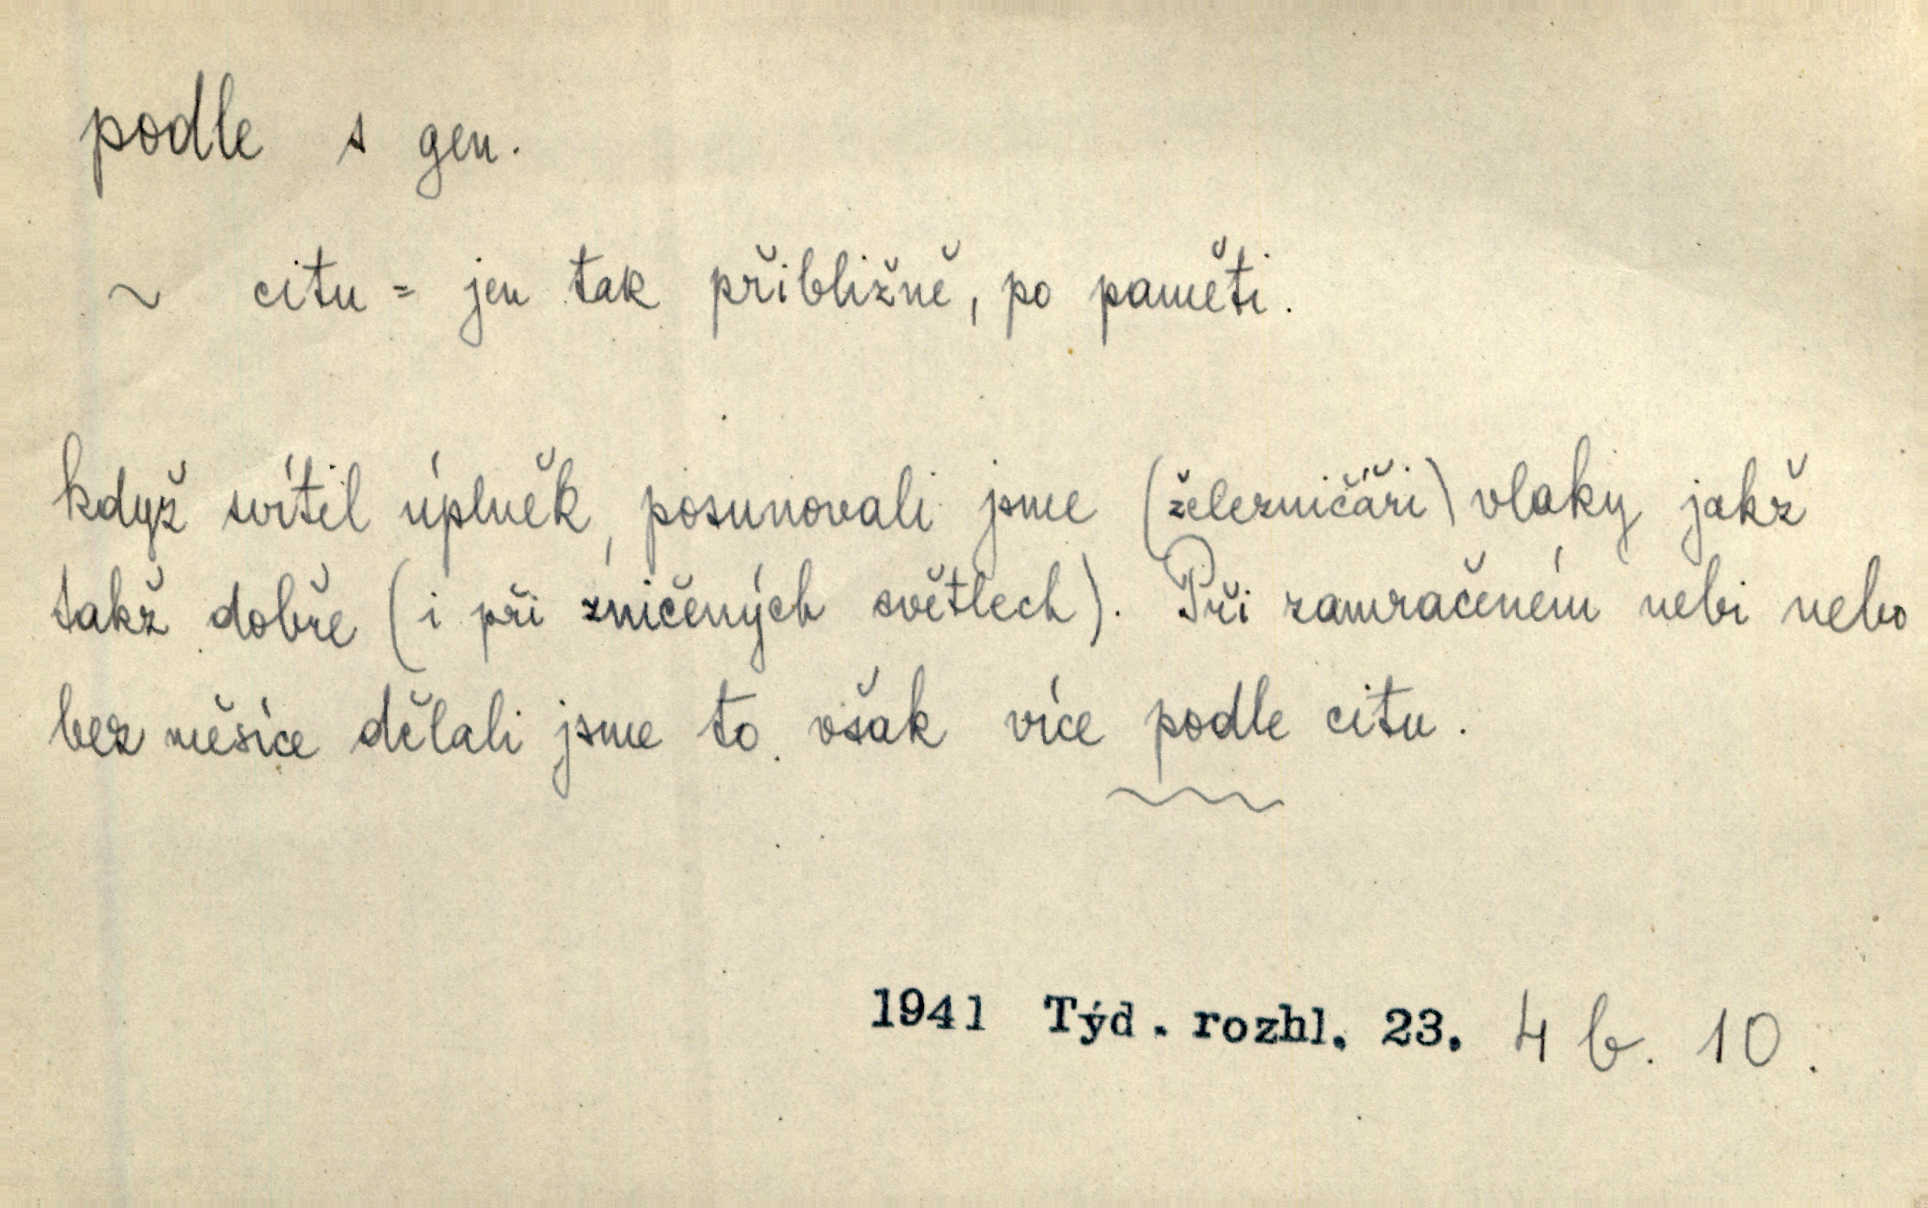 podle s gen.
~ citu = jen tak přibližně, po paměti.
když svítil úplněk, posunovali jsme (železničáři) vlaky jakž
takž dobře (i při zničených světlech). Při zamračeném nebi nebo
bez měsíce dělali jsme to však více podle citu.
1941 Týd. rozhl. 23. 4 b. 10.